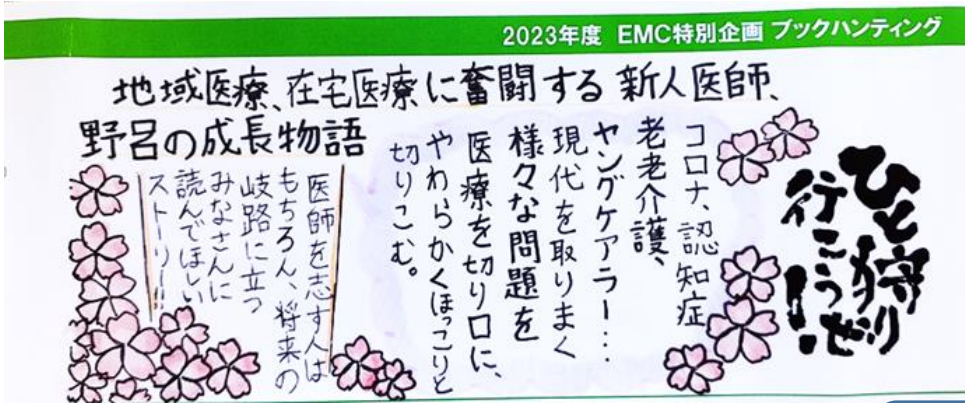 2023年度 EMC特別企画 ブックハンティング
地域医療、在宅医療に奮闘する新人医師、
野呂の成長物語
ひと狩り
行こうぜ!
コロナ、認知症
老老介護、
ヤングケアラー…
現代を取りまく
様々な問題を
医療を切り口に、
やわらかくほっこりと
切りこむ。
医師を志す人は
もちろん、将来の
岐路に立つ
みなさんに
読んでほしい
ストーリー!!